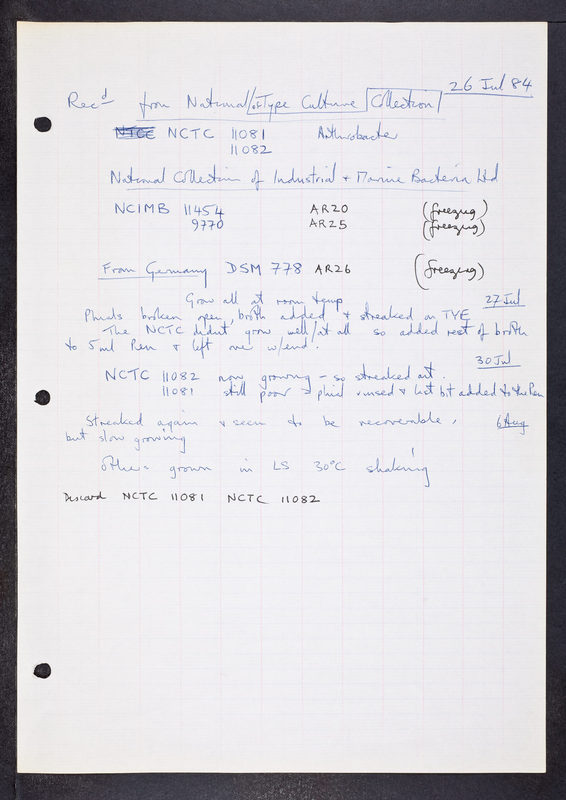 26 Jul 84
Recd from National / of Type Culture Collection
NTCC NCTC 11081 Arthrobacter
11082
National Collection of Industrial + Marine Bacteria Ltd
NCIMB 11454 AR20 (freezing)
9770 AR25 (freezing)
From Germany DSM 778 AR26 (freezing)
Grow all at room temp 27 Jul
Phials broken open, broth added + streaked on TYE
The NCTC didnt grow well/at all so added rest of broth
to 5ml Pen + left over w/end.
30 Jul
NCTC 11082 now growing - so streaked out.
11081 still poor - phial rinsed + last bit added to the Pen
Streaked again + seem to be recoverable, 6 Aug
but slow growing
Others grown in LS 30°C shaking
Discard NCTC 11081 NCTC 11082